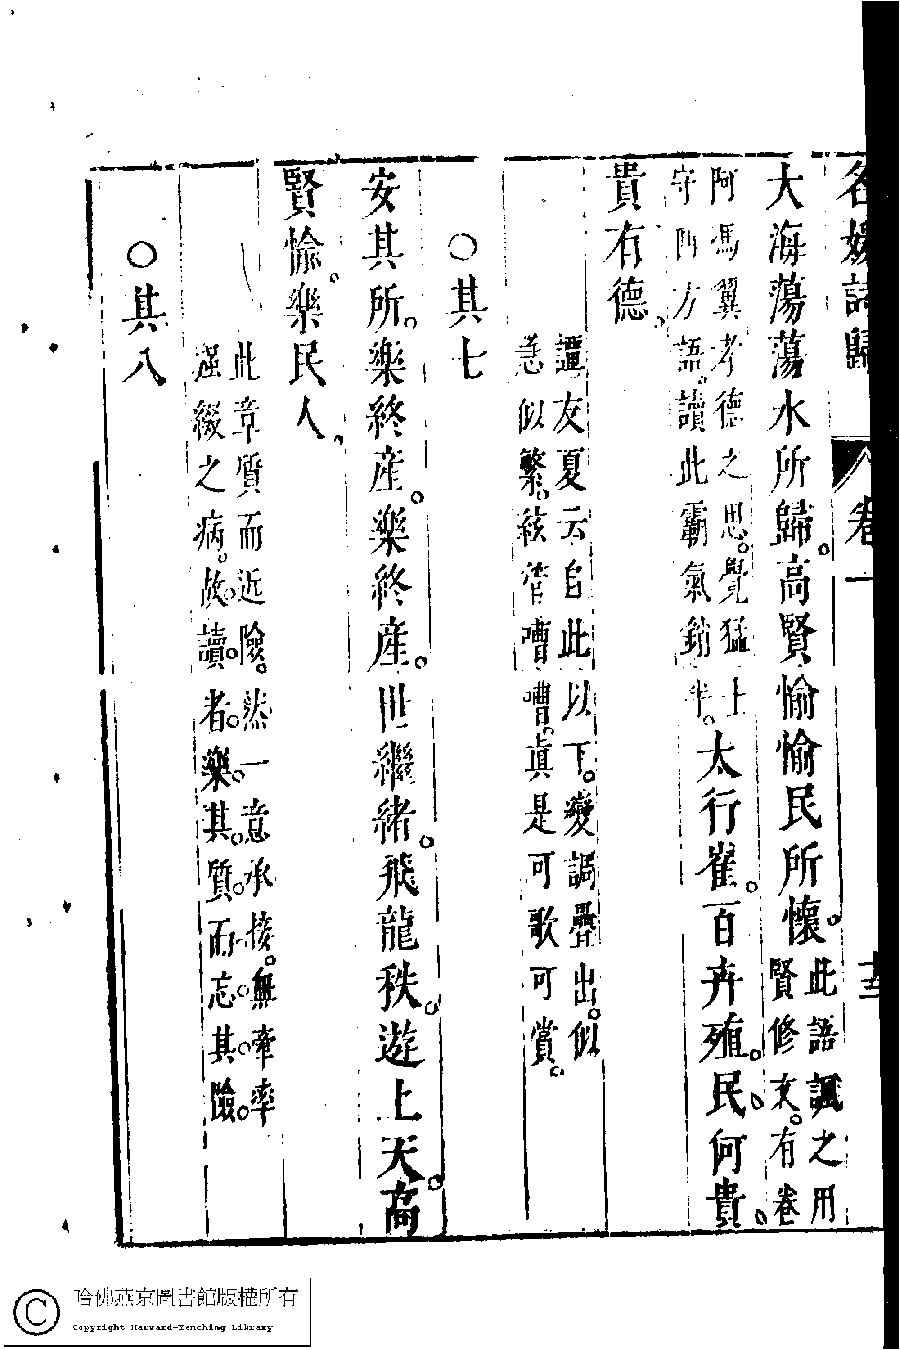 名媛詩歸 卷一 十三
大海蕩蕩水所歸。高賢愉愉民所懷。
此語諷之用
賢修文。有卷
阿馮翼孝德之思。覺猛士
守四方語。讀此霸氣銷半。
太行崔。百卉殖。民何貴。
貴有德。
譚友夏云自此以下。變調疊出。似
急似繁。絃管嘈嘈。真是可歌可賞。
○其七
安其所。樂終產。樂終產。世繼緒。飛龍秩。遊上天。高
賢愉。樂民人。
此章質而近險。然一意承接。無牽率
綴之病。故讀者。樂其質。而忘其險。
○其八
哈佛燕京圖書館版權所有
Copyright Harvard-Yenching Library